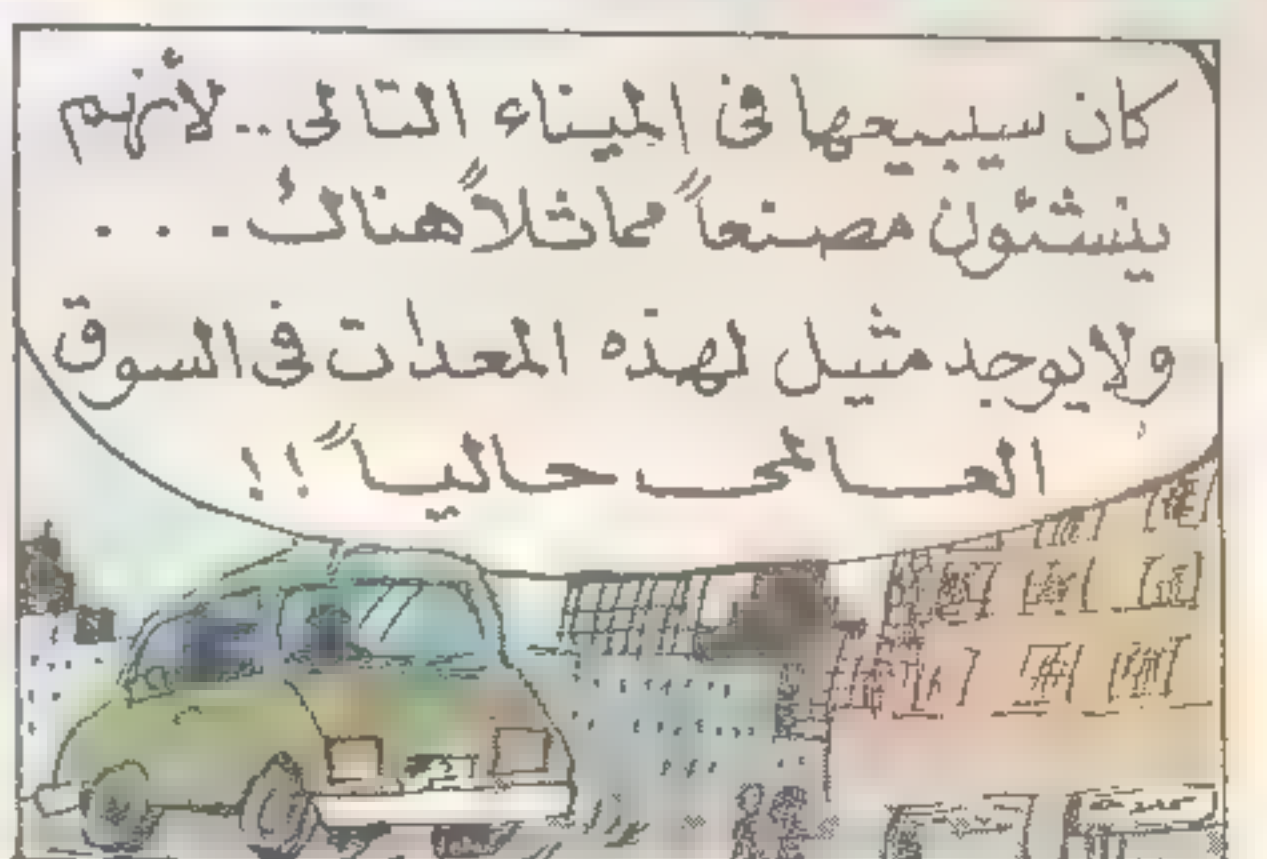 كان سيبيعها فى الميناء التالى.. لأنهم
ينشئون مصنعاً مماثلاً هناك...
ولا يوجد مثيل لهذه المعدات فى السوق
العالمى حالياً!!